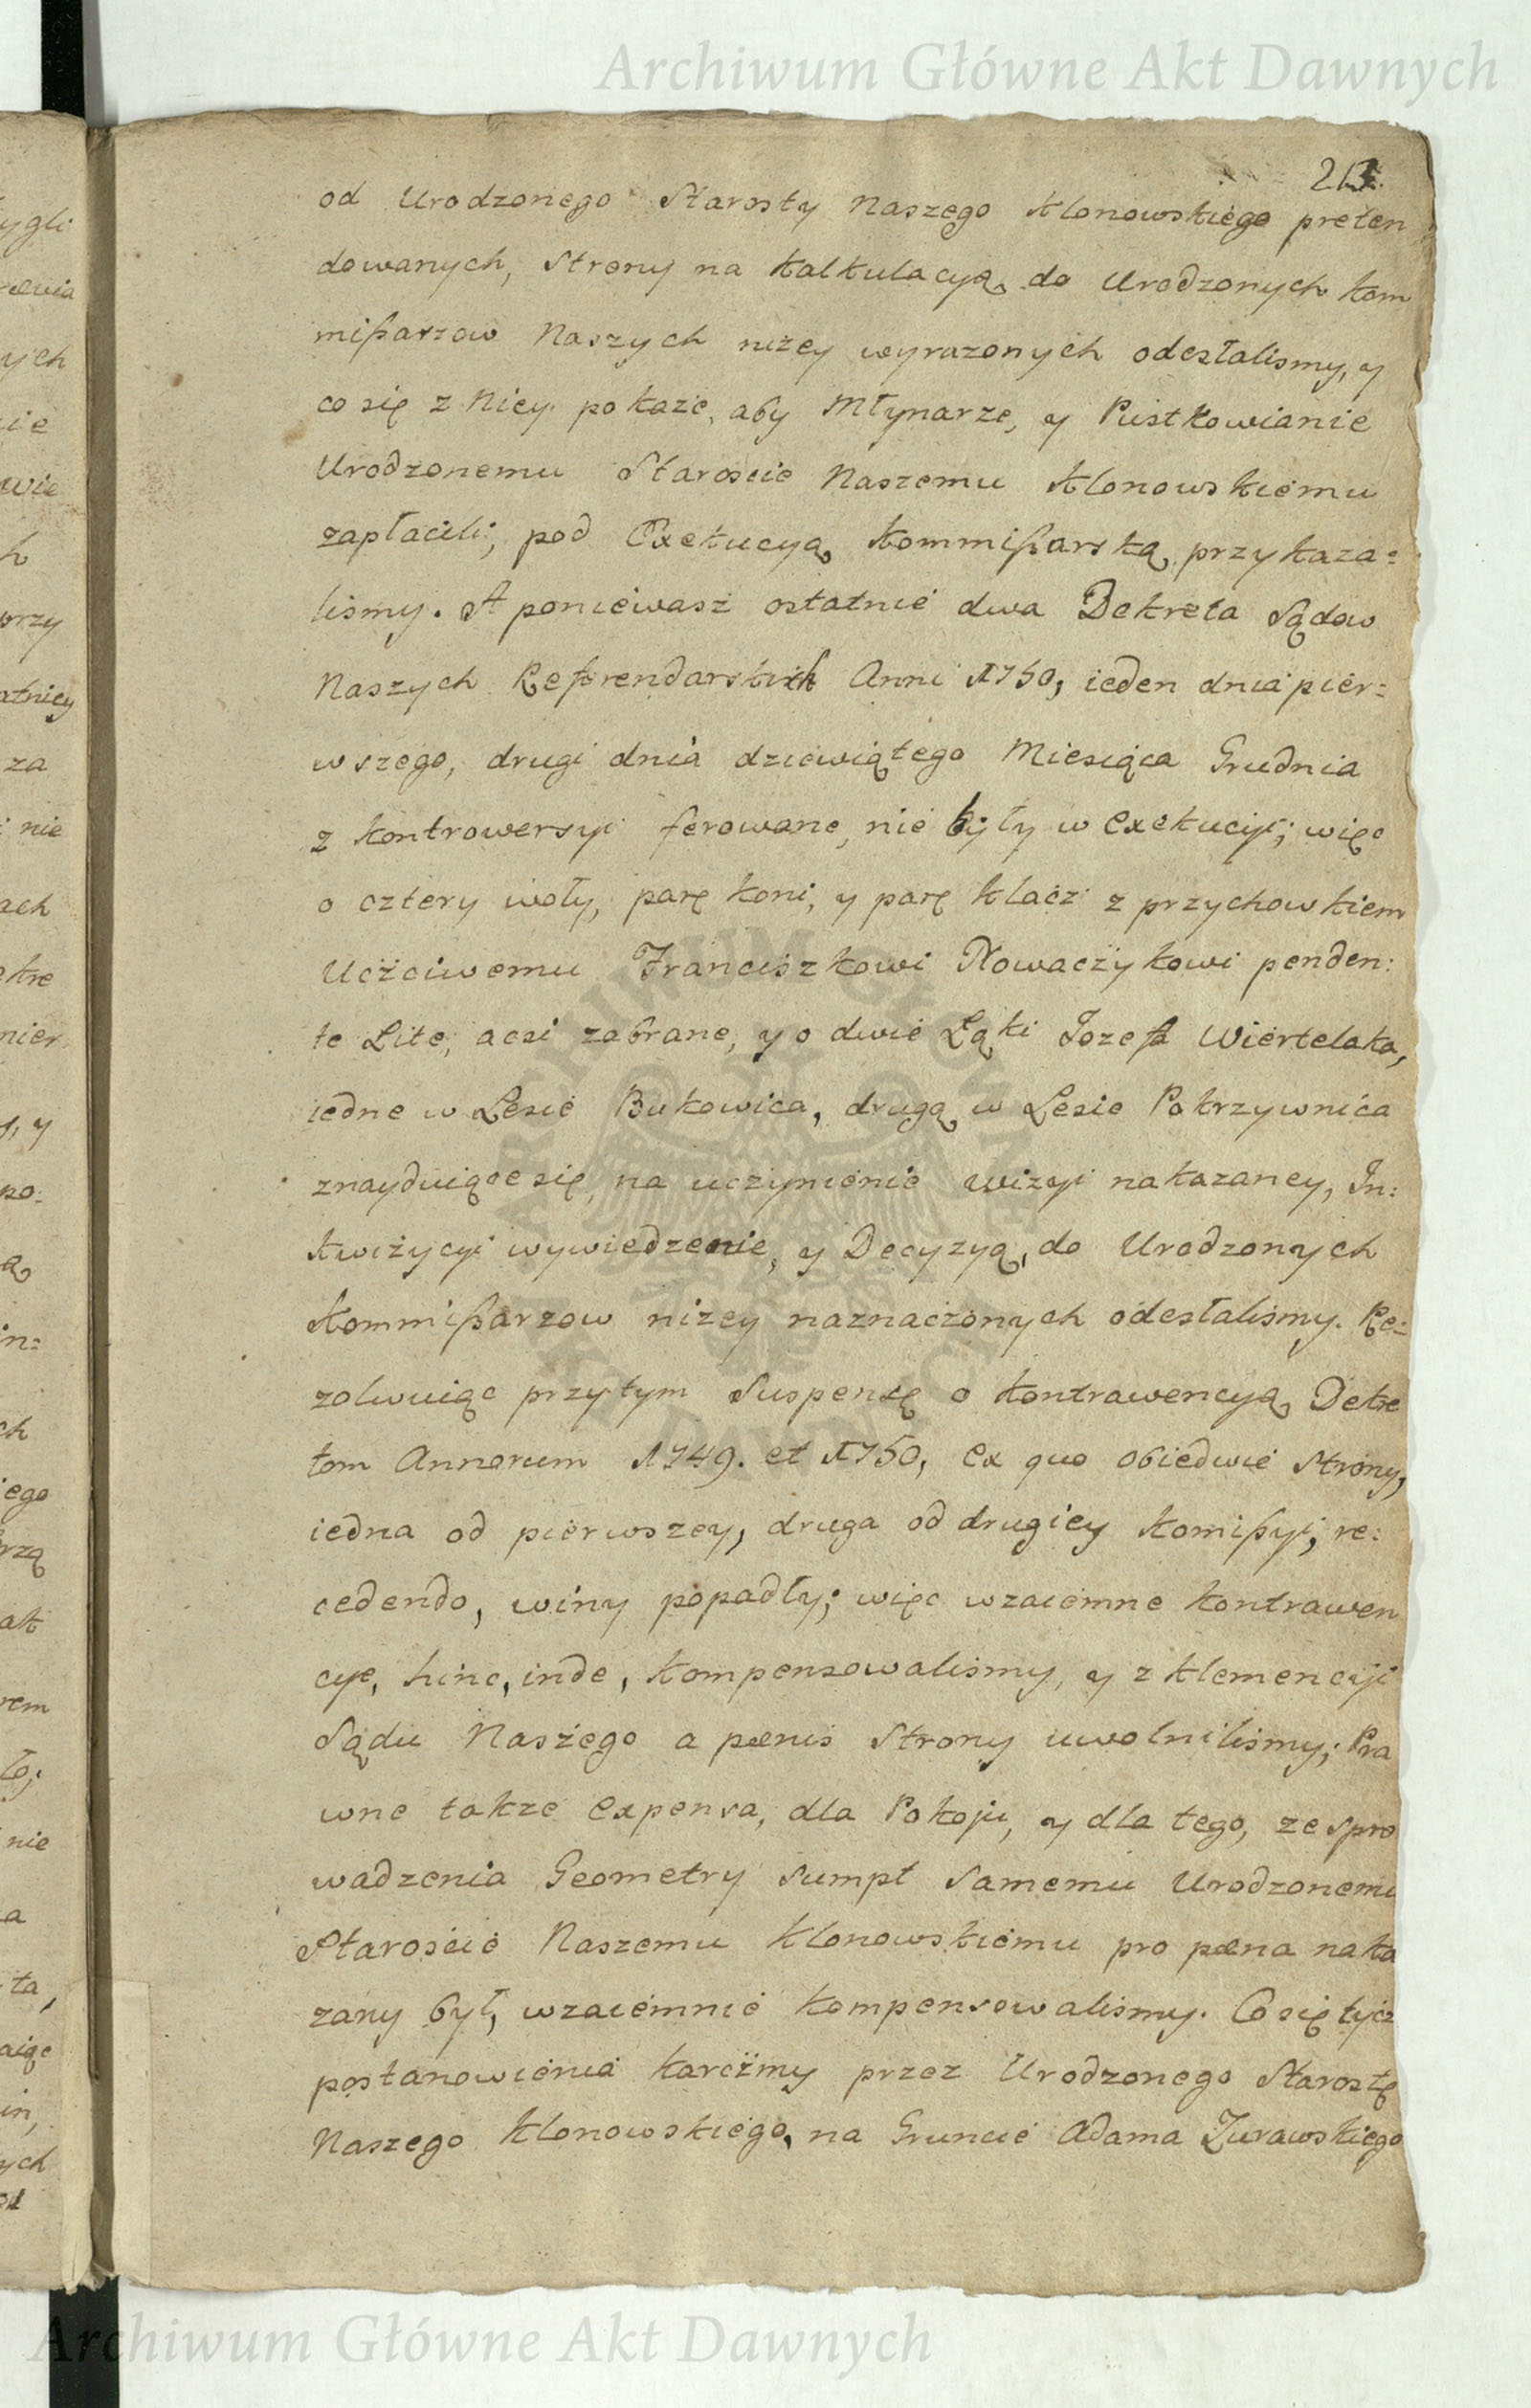 Archiwum Główne Akt Dawnych
213.
od Urodzonego Starosty Naszego Klonowskiego preten
dowanych, Strony na kalkulacyą do Urodzonych kom
mißarzow Naszych niżey wyrazonych odesłalismy, y
co się z Niey pokaże, aby Młynarze, y Pustkowianie
Urodzonemu Staroście Naszemu Klonowskiemu
zapłacili, pod Exekucyą Kommißarską przykaza=
lismy. A poniewasz ostatnie dwa Dekreta Sądow
Naszych Referendarskich Anni 1750, ieden dnia pier=
wszego, drugi dnia dziewiątego Miesiąca Grudnia
z kontrowersyi ferowane, nie były w Exekucyi; więc
o cztery woły, parę koni, y parę klacz z przychowkiem
Uczciwemu Franciszkowi Nowaczykowi penden:
te Lite, acsi zabrane, y o dwie Łąki Jozefa Wiertelaka,
iedne w Lesie Bukowica, drugą w Lesie Pokrzywnica
znayduiące się, na uczynienie wizyi nakazaney, In:
kwizycyi wywiedzenie, y Decyzyą, do Urodzonych
Kommißarzow niżey naznaczonych odesłalismy. Re=
zolwuiąc przytym Suspensę o kontrawencyą Dekre
tom Annorum 1749. et 1750, Ex quo obiedwie Strony,
iedna od pierwszey, druga od drugiey Komißyi, re:
cedendo, winy popadły; więc wzaiemne kontrawen
cye, hinc, inde, kompensowalismy, y z klemencyi
Sądu Naszego a pœnis Strony uwolnilismy; Pra
wne takze Expensa, dla Pokoju, y dla tego, ze spro
wadzenia Geometry Sumpt Samemu Urodzonemu
Staroście Naszemu Klonowskiemu pro pœna naka
zany był, wzaiemnie kompensowalismy. Co się tycz
postanowienia karczmy przez Urodzonego Starostę
Naszego Klonowskiego, na Gruncie Adama Zurawskiego
Archiwum Główne Akt Dawnych